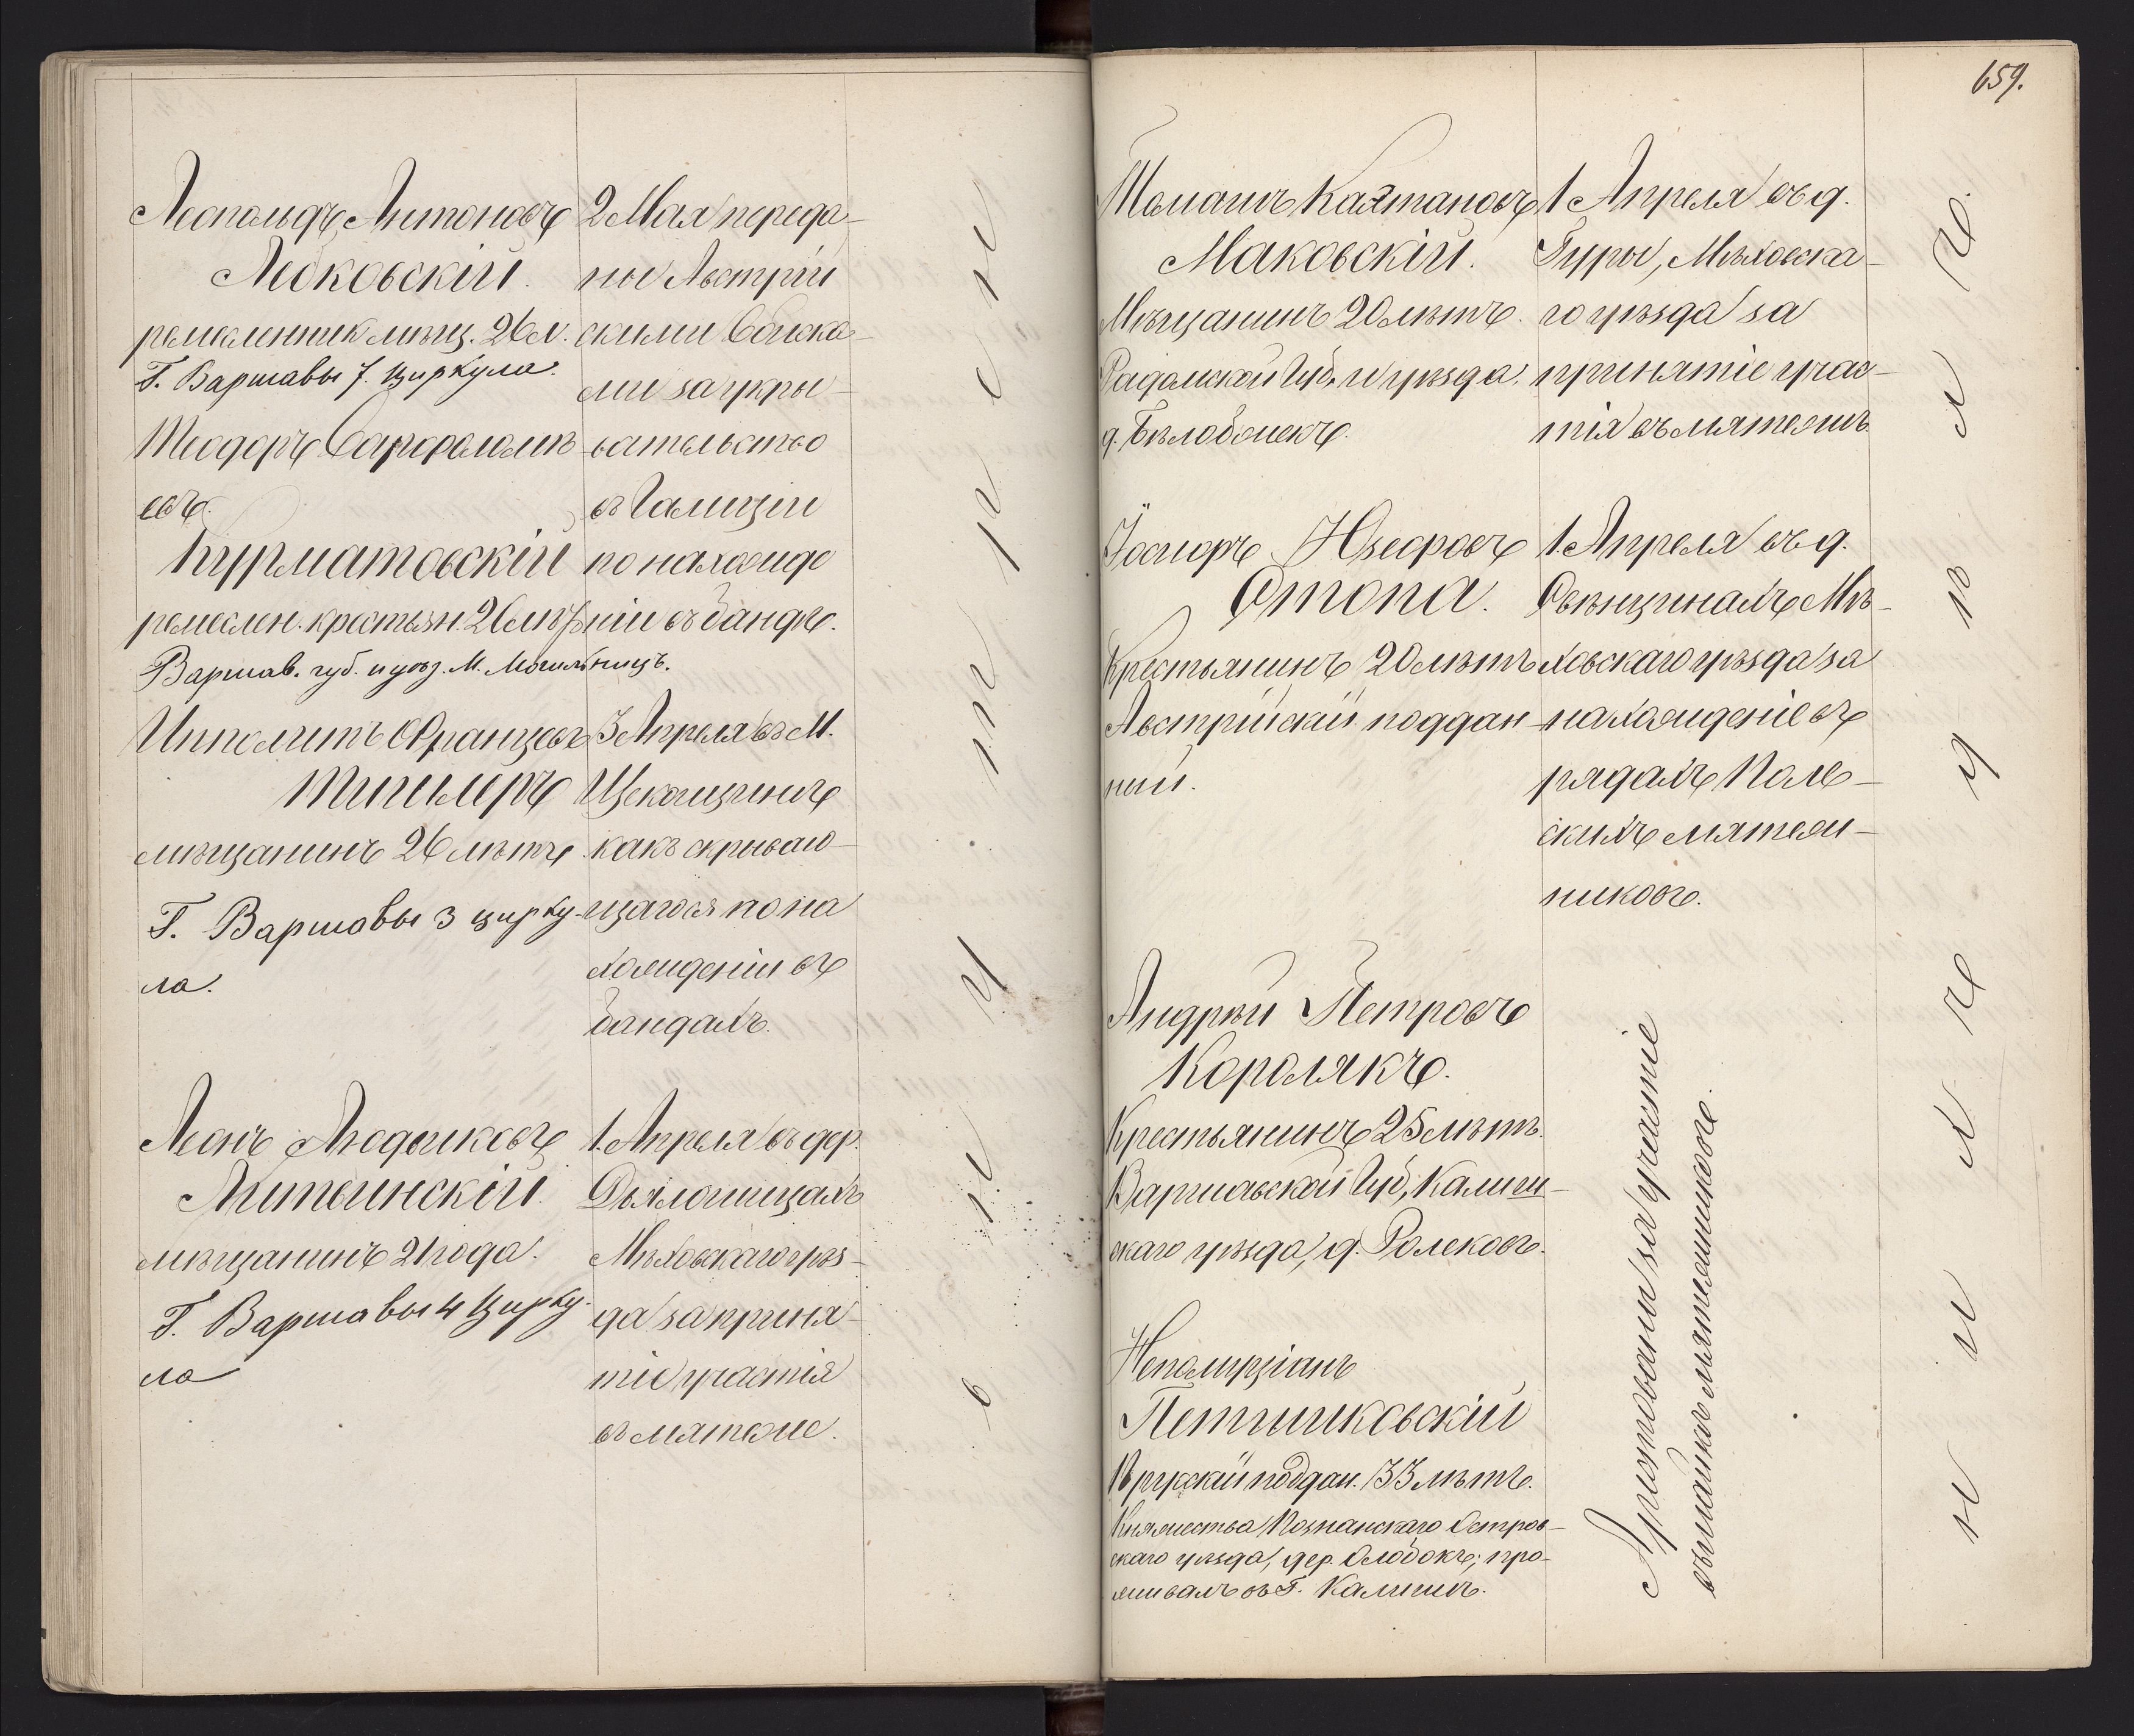 Леопольдъ Антоновъ
Лебковскій.
ремесленникъ мѣщ. 26 л.
Г. Варшавы 7. циркула.
Теодоръ Варфоломѣ-
евъ
Курматовскій
ремеслен. крестьян. 26 лѣтъ
Варшав. губ. и уѣз. М. Могильницъ.
2 Мая переда-
ны Австрій
скими Войска-
ми за укры-
вательство
въ Галиціи
по нахожде
ніи въ бандѣ.
Ипполитъ Францовъ
Типлеръ
мѣщанинъ 26 лѣтъ.
Г. Варшавы 3 цирку-
ла.
3 Апрѣля въ М.
Щекоцинъ
какъ скрываю-
щагося по на
хожденіи въ
бандахъ.
Леонъ Людвиковъ
Литынскій.
мѣщанинъ 21 года.
Г. Варшавы 4 Цирку-
ла
1. Апрѣля въ дер.
Дзялошицахъ
Мѣховскаго уѣз-
да за приня-
тіе участія
въ мятеже.
659.
Томашъ Каэтановъ
Маковскій.
Мѣщанинъ 20 лѣтъ.
Радомской Губ. и уѣзда,
д. Бѣлобжекъ.
1 Апреля въ д.
Гуры, Мѣховска-
го уѣзда за
принятіе учас-
тія въ мятежѣ.
Юзефовъ
Отопа.
Крестьянинъ 20 лѣтъ
Австрійскій поддан-
ный.
1. Апреля въ д.
Свѣнцинахъ Мѣ-
ховскаго уѣзда за
нахожденіе въ
рядахъ Поль-
скихъ мятеж-
никовъ.
Андрей Петровъ
Королякъ.
Крестьянинъ 25 лѣтъ.
Варшавской Губ., Калиш-
скаго уѣзда, д. Ролековъ.
Непомуціанъ
Петшиковскій
Прускій поддан. 33 лѣтъ.
Княжества Познанскаго Остров-
скаго уѣзда, дер. Слободкъ; про-
живалъ въ Г. Калишѣ.
Арестованы за участіе
въ шайкахъ мятежниковъ.